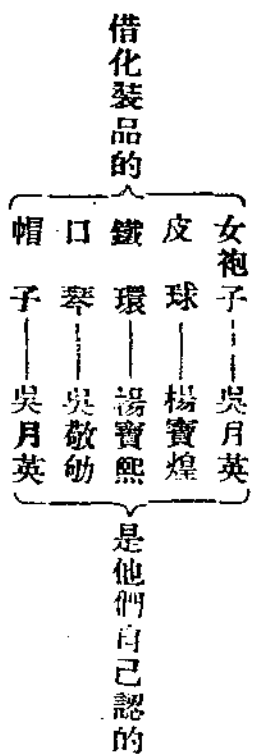 借化裝品的
女袍子——吳月英
皮球——楊寶煌
鐵環——湯寶熙
口琴——吳敬劬
帽子——吳月英
是他們自己認的